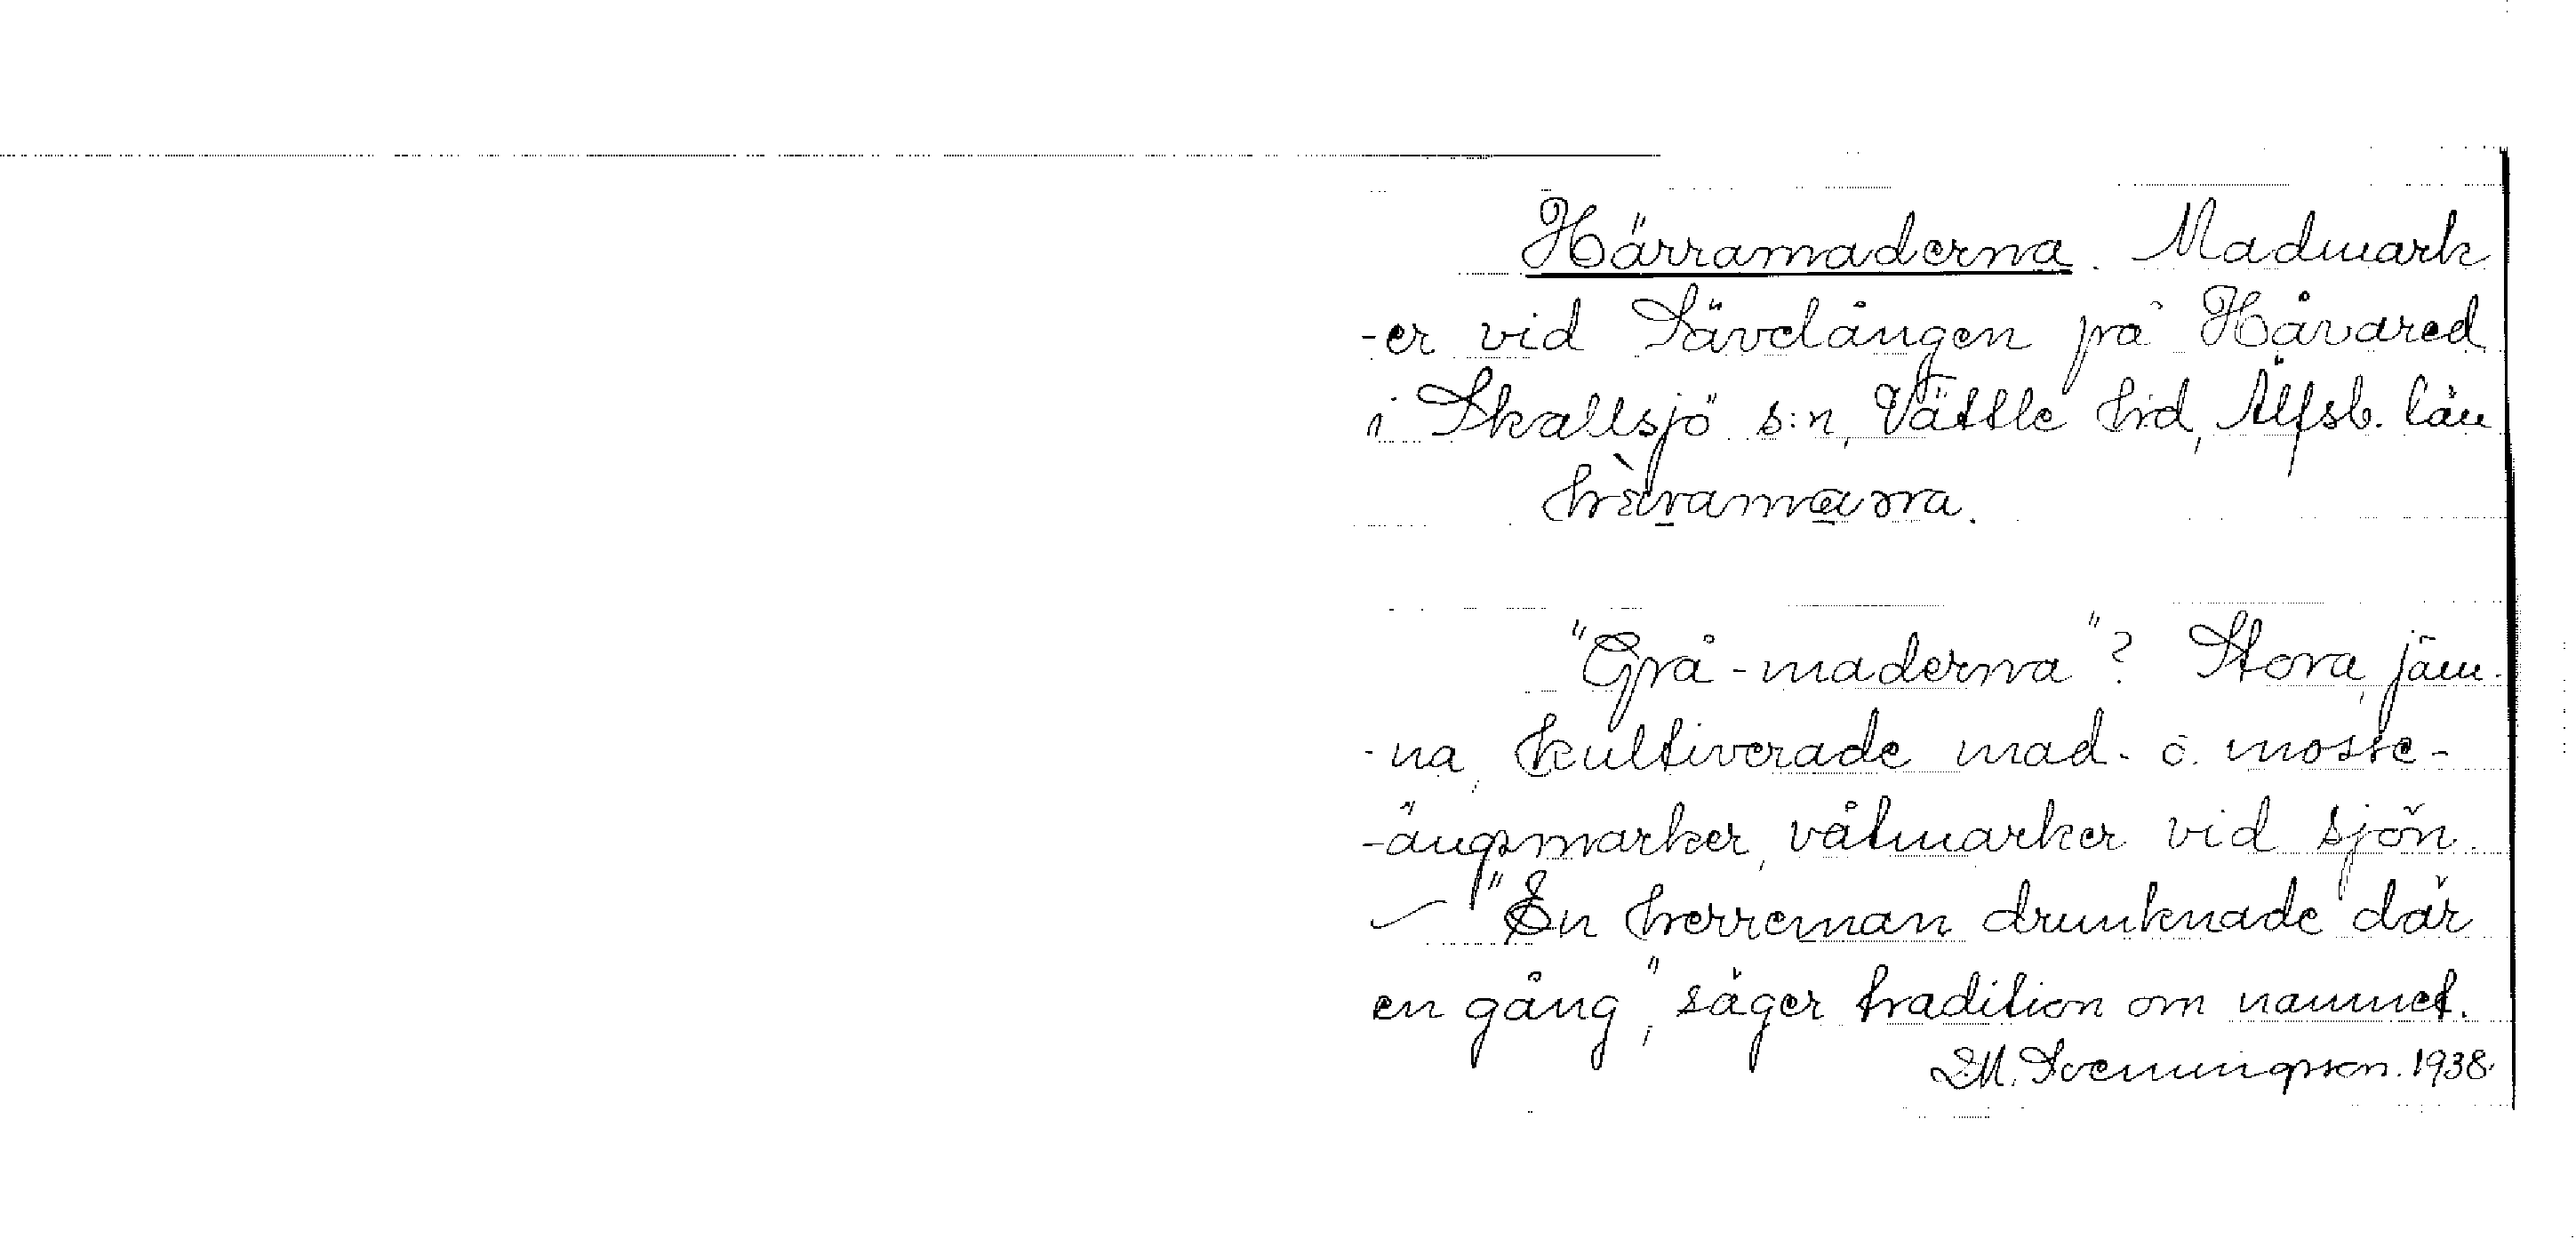 Härramaderna. Madmark
-er vid Sävelången på Håvared
i Skallsjö s:n, Vättle hd, Älfsb. län
"Grå-maderna"? Stora, jäm-
-na, kultiverade mad- o. mosse-
-ängsmarker, våtmarker vid sjön.
– "En herreman drunknade där
en gång", säger tradition om namnet.
D.M. Svenningsson. 1938